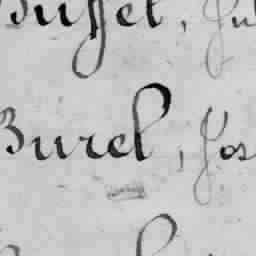 Buffet, Ju
Burel, Jos